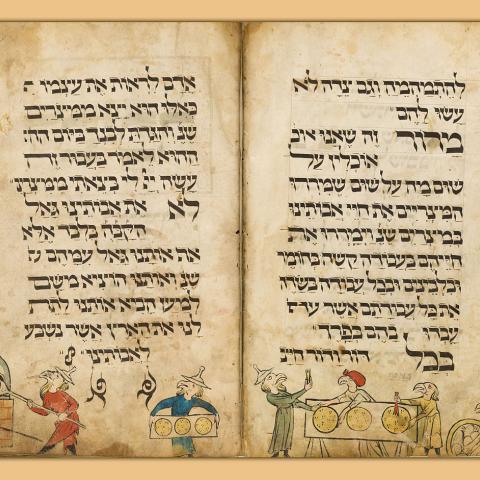 להתמהמה וגם צדה לא
עשו להם
מרור זה שאנו אוכ
אוכלין על
שום מה על שום שמררו
המצריים את חיי אבותינו
במצרים שנ וימררו את
חייהם בעבודה קשה בחומר
ובלבנים ובכל עבודה בשדה
את כל עבודתם אשר
עבדו בהם בפרך
בכל דור ודור חייב
אדם לראות את עצמו כ
כאלו הוא יצא ממצרים
שנ והגדת לבנך ביום ההו
ההוא לאמר בעבור זה
עשה יי לי בצאתי ממצרי
לא את אבותינו גאל
הקבה בלבד אלא
אף אותנו גאל עמהם
שנ ואותנו הוציא משם
למען הביא אותנו לתת
לנו את הארץ אשר נשבע
לאבותינו